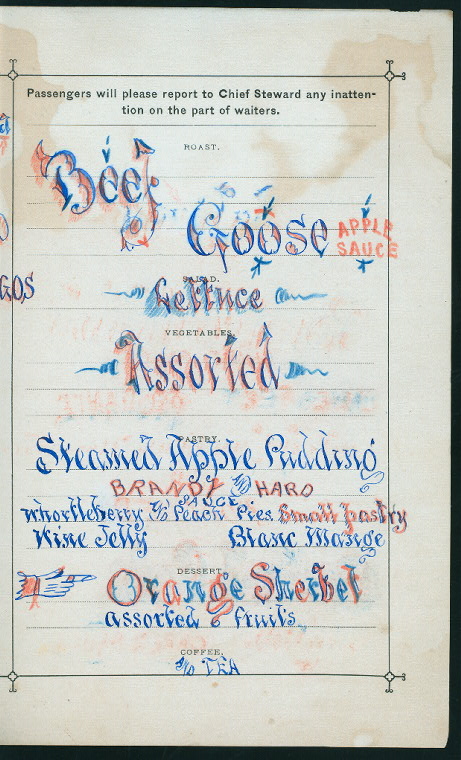 Passengers will please report to Chief Steward any inatten-
tion on the part of waiters.
ROAST.
Beef
Goose APPLE
SAUCE
SALAD.
Lettuce
VEGETABLES.
Assorted
PASTRY.
Steamed Apple Pudding
BRANDY and HARD
SAUCE
Whortleberry & Peach Pies Small pastry
Wine Jelly Blanc Mange
DESSERT.
Orange Sherbet
assorted fruits
COFFEE.
AND TEA
GOS